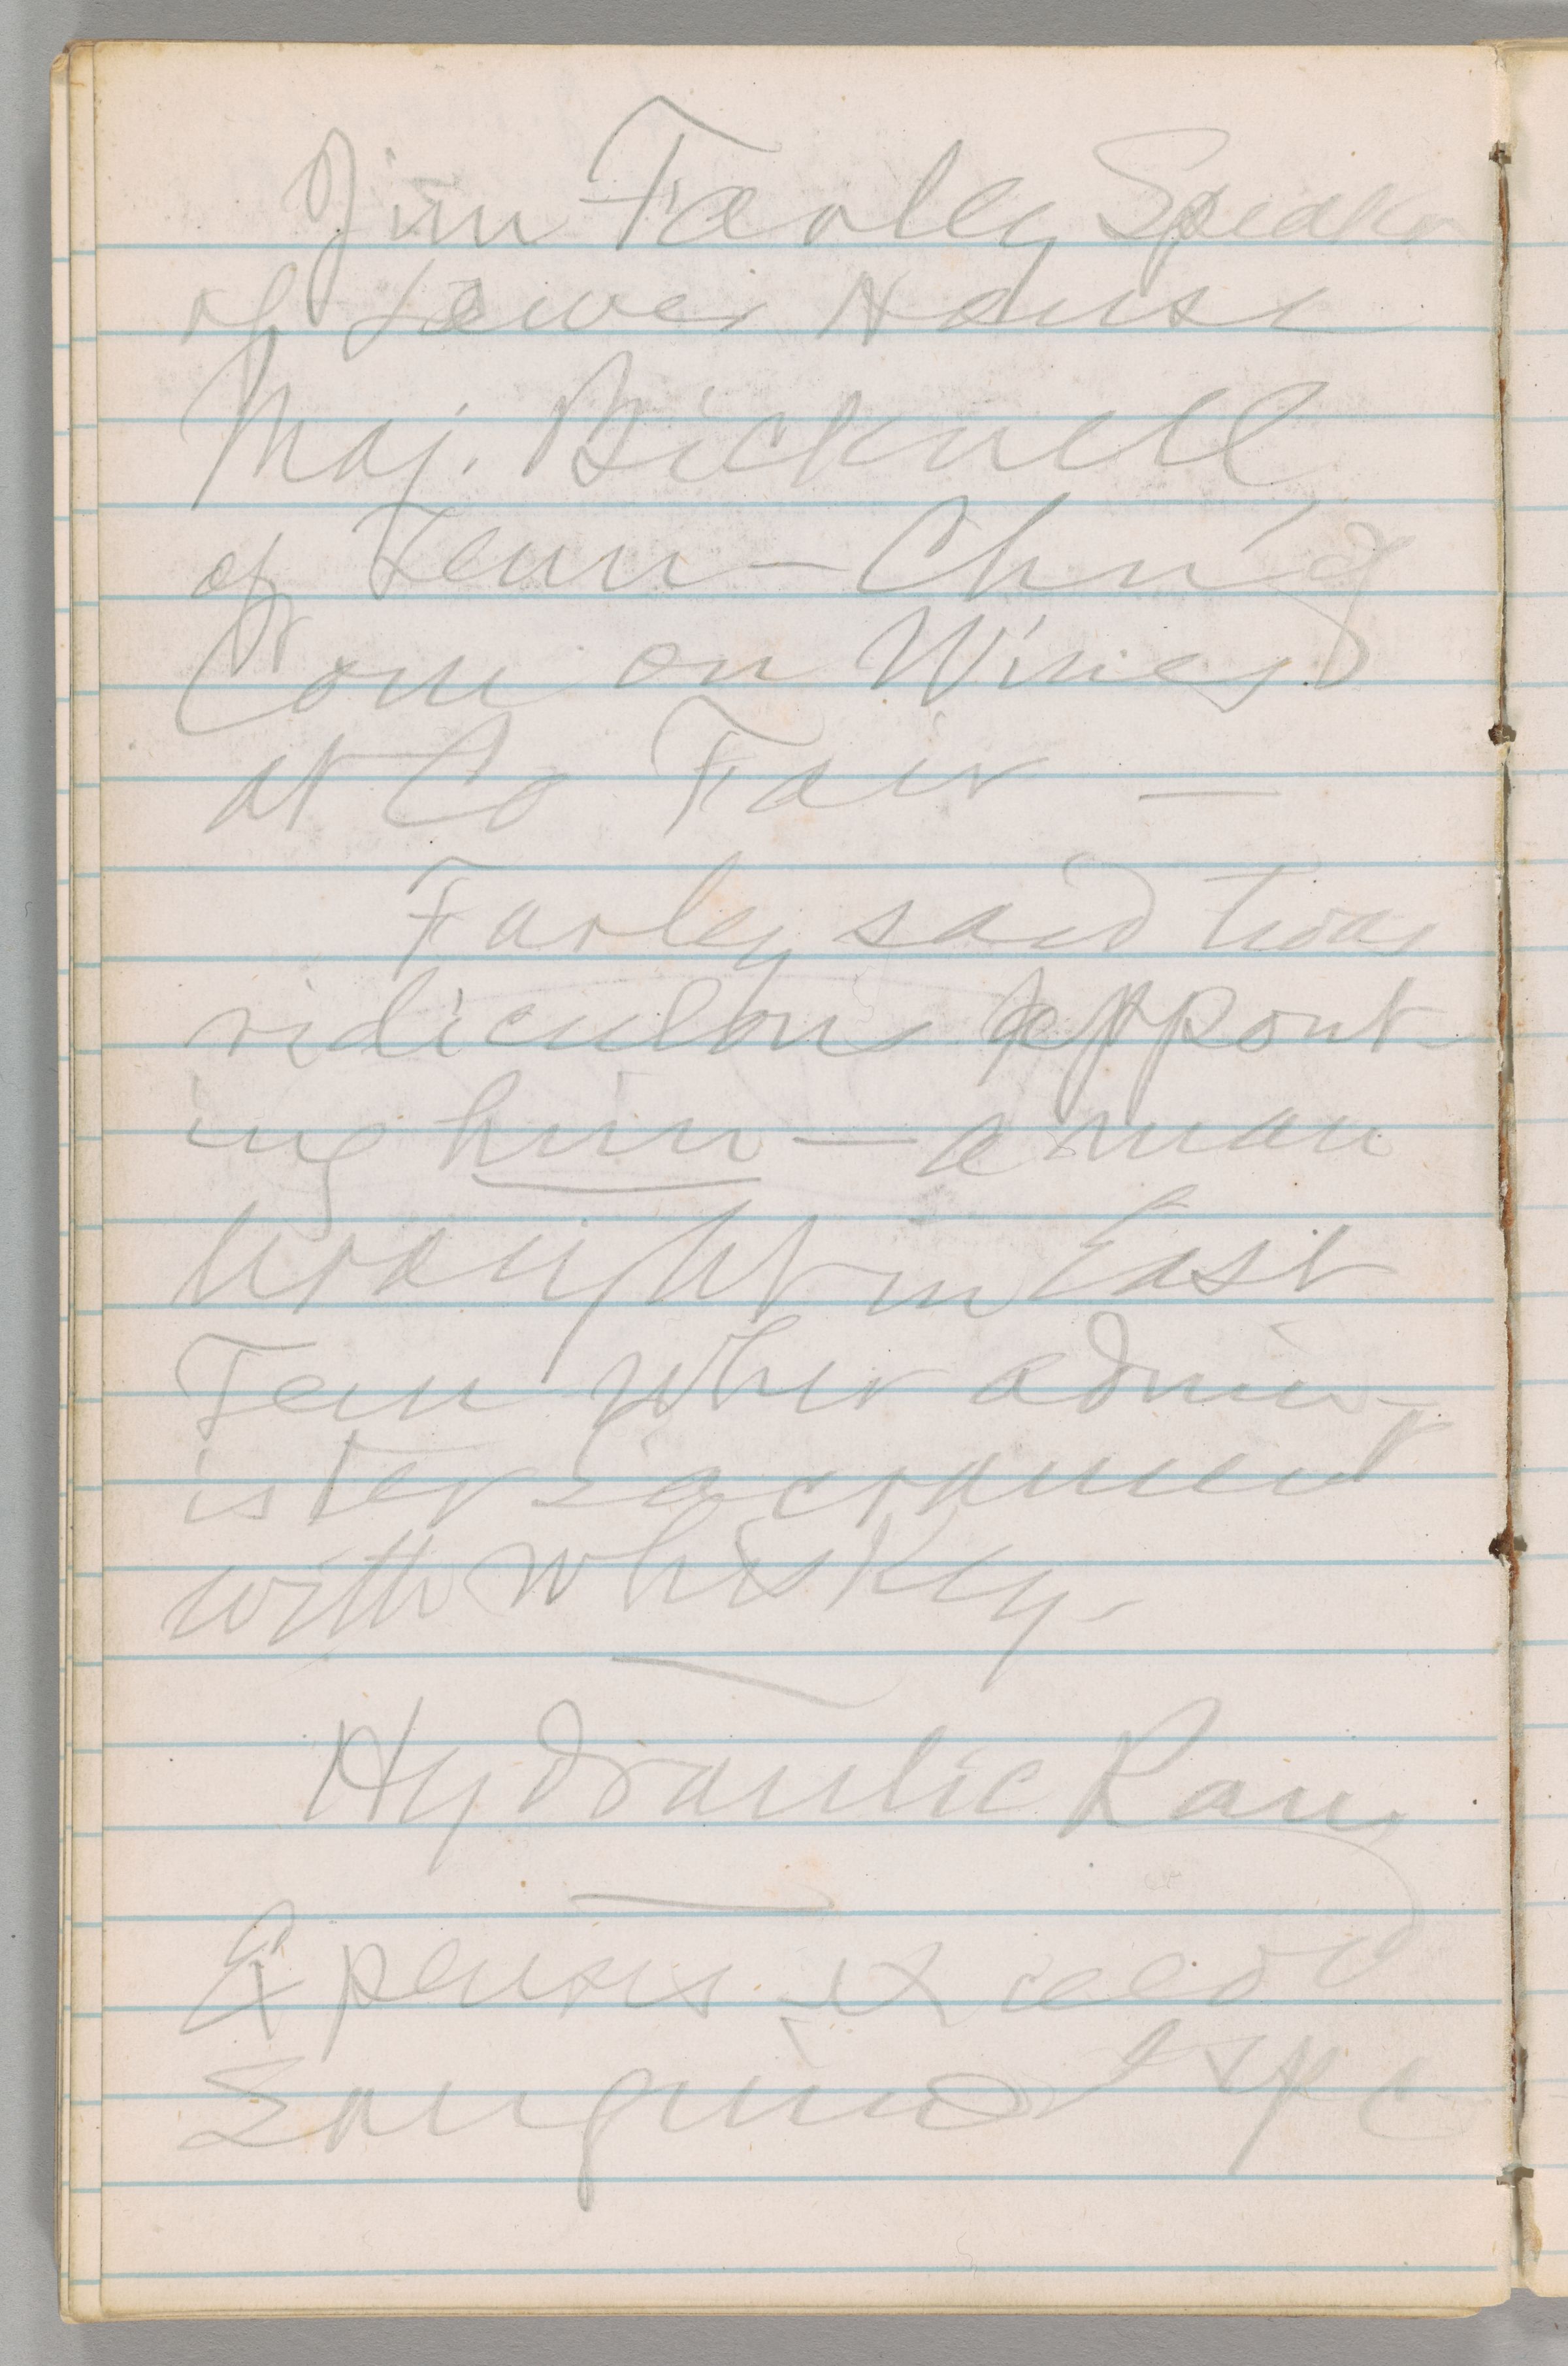 Jim Farley Speaker
of Lower House
Maj. Bicknell
of Tenn — Chn'g
Com on Wines
at Co Fair —
Farley said twas
ridiculous appoint-
ing him — a man
brought in East
Tenn wher admin-
ister Sacrament
with whisky.
Hydraulic Ram
Expenses exceed
Sanguine expec